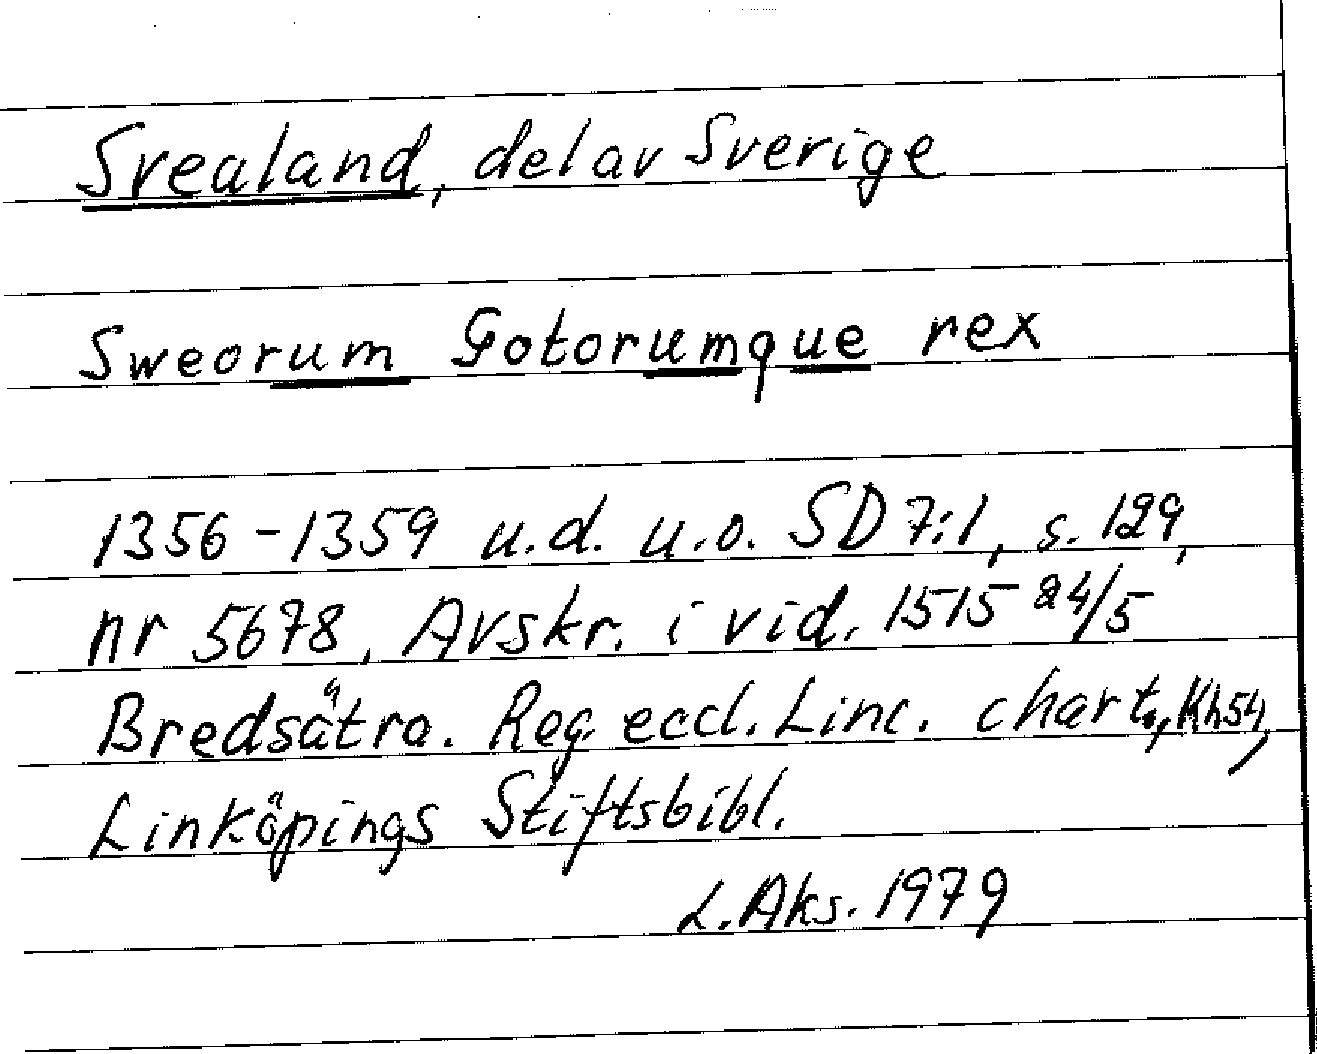 Svealand, del av Sverige
Sweorum Gotorumque rex
1356-1359 u.d. u.o. SD 7:1, s. 129,
nr 5678, Avskr. i vid. 1515 24/5
Bredsätra. Reg. eccl. Linc. chart., Kh54,
Linköpings Stiftsbibl.
L. Aks. 1979